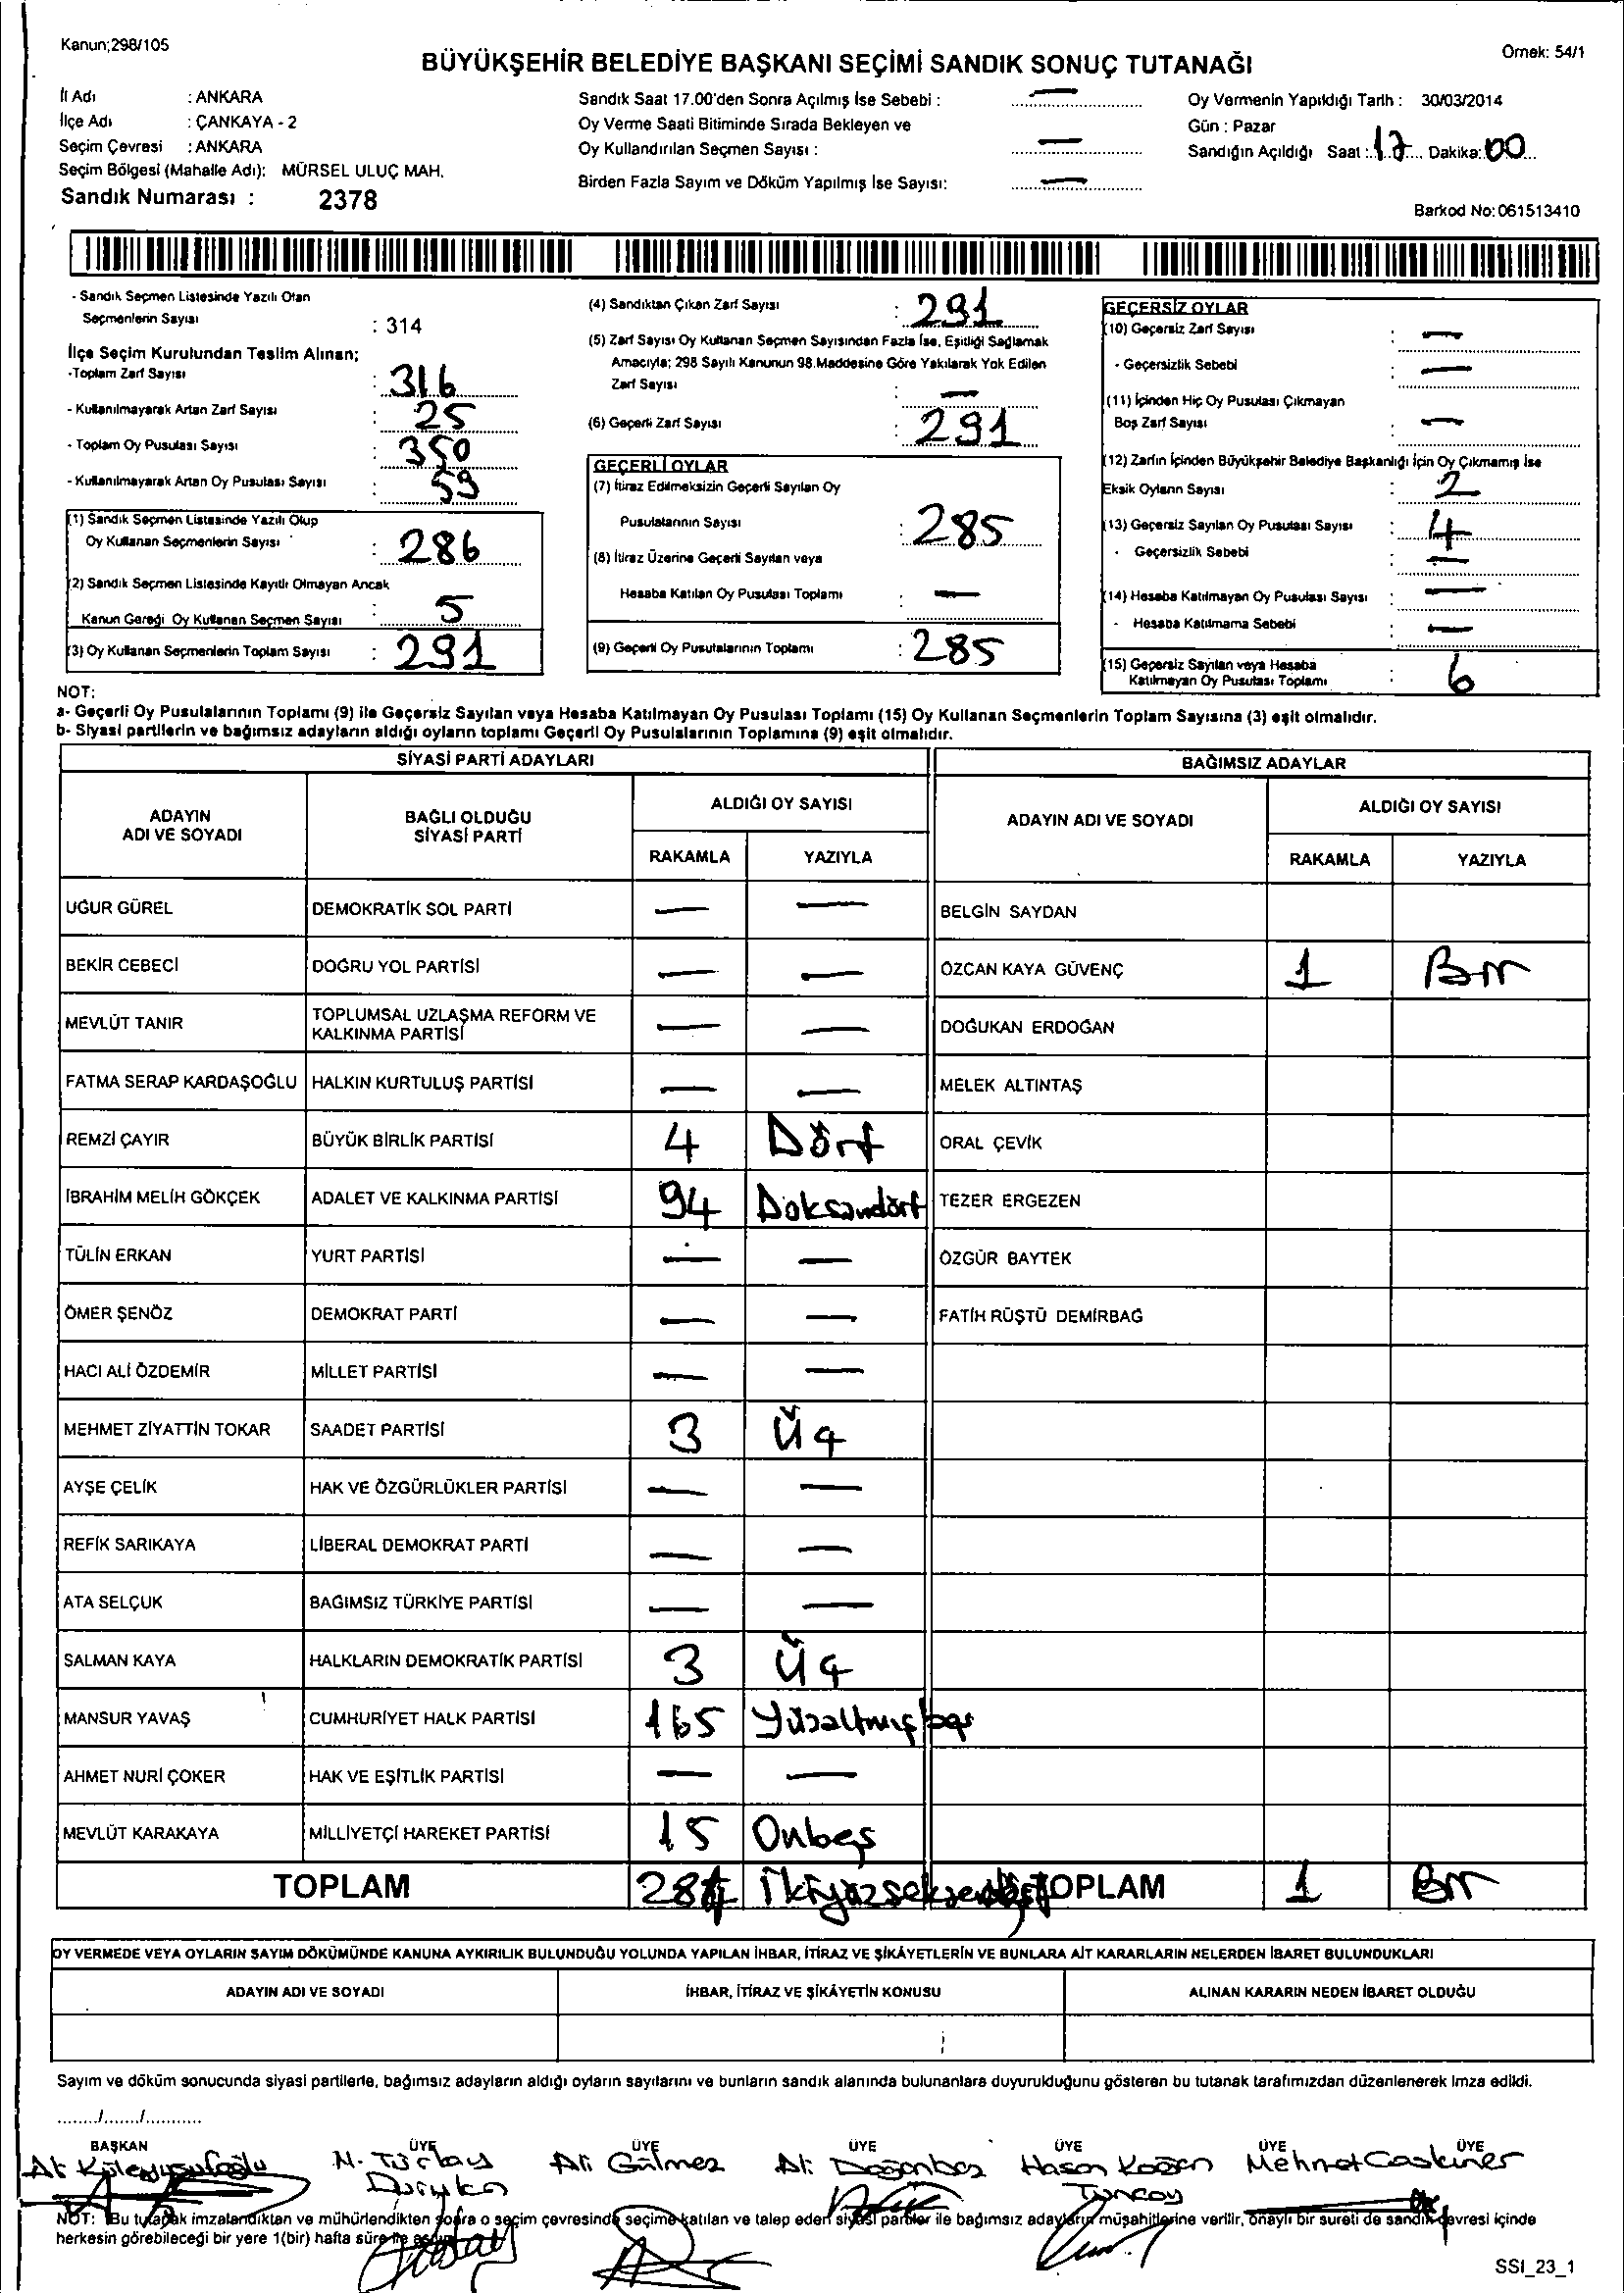 Kanun;298/105
Örnek: 54/1
BÜYÜKŞEHİR BELEDİYE BAŞKANI SEÇİMİ SANDIK SONUÇ TUTANAĞI
İl Adı : ANKARA
İlçe Adı : ÇANKAYA - 2
Seçim Çevresi : ANKARA
Seçim Bölgesi (Mahalle Adı): MÜRSEL ULUÇ MAH.
Sandık Numarası : 2378
Sandık Saat 17.00'den Sonra Açılmış İse Sebebi : —
Oy Verme Saati Bitiminde Sırada Bekleyen ve
Oy Kullandırılan Seçmen Sayısı : —
Birden Fazla Sayım ve Döküm Yapılmış İse Sayısı: —
Oy Vermenin Yapıldığı Tarih : 30/03/2014
Gün : Pazar
Sandığın Açıldığı Saat : 17 Dakika: 00
Barkod No: 061513410
- Sandık Seçmen Listesinde Yazılı Olan
Seçmenlerin Sayısı : 314
İlçe Seçim Kurulundan Teslim Alınan;
-Toplam Zarf Sayısı : 316
- Kullanılmayarak Artan Zarf Sayısı : 25
- Toplam Oy Pusulası Sayısı : 350
- Kullanılmayarak Artan Oy Pusulası Sayısı : 59
(1) Sandık Seçmen Listesinde Yazılı Olup
Oy Kullanan Seçmenlerin Sayısı : 286
(2) Sandık Seçmen Listesinde Kayıtlı Olmayan Ancak
Kanun Gereği Oy Kullanan Seçmen Sayısı : 5
(3) Oy Kullanan Seçmenlerin Toplam Sayısı : 291
(4) Sandıktan Çıkan Zarf Sayısı : 291
(5) Zarf Sayısı Oy Kullanan Seçmen Sayısından Fazla İse, Eşitliği Sağlamak
Amacıyla; 298 Sayılı Kanunun 98.Maddesine Göre Yakılarak Yok Edilen
Zarf Sayısı : —
(6) Geçerli Zarf Sayısı : 291
GEÇERLİ OYLAR
(7) İtiraz Edilmeksizin Geçerli Sayılan Oy
Pusulalarının Sayısı : 285
(8) İtiraz Üzerine Geçerli Sayılan veya
Hesaba Katılan Oy Pusulası Toplamı : —
(9) Geçerli Oy Pusulalarının Toplamı : 285
GEÇERSİZ OYLAR
(10) Geçersiz Zarf Sayısı : —
- Geçersizlik Sebebi : —
(11) İçinden Hiç Oy Pusulası Çıkmayan
Boş Zarf Sayısı : —
(12) Zarfın İçinden Büyükşehir Belediye Başkanlığı İçin Oy Çıkmamış İse
Eksik Oyların Sayısı : 2
(13) Geçersiz Sayılan Oy Pusulası Sayısı : 4
- Geçersizlik Sebebi : —
(14) Hesaba Katılmayan Oy Pusulası Sayısı : —
- Hesaba Katılmama Sebebi : —
(15) Geçersiz Sayılan veya Hesaba
Katılmayan Oy Pusulası Toplamı : 6
NOT:
a- Geçerli Oy Pusulalarının Toplamı (9) ile Geçersiz Sayılan veya Hesaba Katılmayan Oy Pusulası Toplamı (15) Oy Kullanan Seçmenlerin Toplam Sayısına (3) eşit olmalıdır.
b- Siyasi partilerin ve bağımsız adayların aldığı oyların toplamı Geçerli Oy Pusulalarının Toplamına (9) eşit olmalıdır.
SİYASİ PARTİ ADAYLARI
ADAYIN ADI VE SOYADI BAĞLI OLDUĞU SİYASİ PARTİ ALDIĞI OY SAYISI
RAKAMLA YAZIYLA
UĞUR GÜREL DEMOKRATİK SOL PARTİ — —
BEKİR CEBECİ DOĞRU YOL PARTİSİ — —
MEVLÜT TANIR TOPLUMSAL UZLAŞMA REFORM VE KALKINMA PARTİSİ — —
FATMA SERAP KARDAŞOĞLU HALKIN KURTULUŞ PARTİSİ — —
REMZİ ÇAYIR BÜYÜK BİRLİK PARTİSİ 4 Dört
İBRAHİM MELİH GÖKÇEK ADALET VE KALKINMA PARTİSİ 94 Doksandört
TÜLİN ERKAN YURT PARTİSİ — —
ÖMER ŞENÖZ DEMOKRAT PARTİ — —
HACI ALİ ÖZDEMİR MİLLET PARTİSİ — —
MEHMET ZİYATTİN TOKAR SAADET PARTİSİ 3 Üç
AYŞE ÇELİK HAK VE ÖZGÜRLÜKLER PARTİSİ — —
REFİK SARIKAYA LİBERAL DEMOKRAT PARTİ — —
ATA SELÇUK BAĞIMSIZ TÜRKİYE PARTİSİ — —
SALMAN KAYA HALKLARIN DEMOKRATİK PARTİSİ 3 Üç
MANSUR YAVAŞ CUMHURİYET HALK PARTİSİ 165 Yüzaltmışbeş
AHMET NURİ ÇOKER HAK VE EŞİTLİK PARTİSİ — —
MEVLÜT KARAKAYA MİLLİYETÇİ HAREKET PARTİSİ 15 Onbeş
TOPLAM 284
BAĞIMSIZ ADAYLAR
ADAYIN ADI VE SOYADI ALDIĞI OY SAYISI
RAKAMLA YAZIYLA
BELGİN SAYDAN
ÖZCAN KAYA GÜVENÇ 1 Bir
DOĞUKAN ERDOĞAN
MELEK ALTINTAŞ
ORAL ÇEVİK
TEZER ERGEZEN
ÖZGÜR BAYTEK
FATİH RÜŞTÜ DEMİRBAĞ
TOPLAM 1 Bir
OY VERMEDE VEYA OYLARIN SAYIM DÖKÜMÜNDE KANUNA AYKIRILIK BULUNDUĞU YOLUNDA YAPILAN İHBAR, İTİRAZ VE ŞİKÂYETLERİN VE BUNLARA AİT KARARLARIN NELERDEN İBARET BULUNDUKLARI
ADAYIN ADI VE SOYADI İHBAR, İTİRAZ VE ŞİKÂYETİN KONUSU ALINAN KARARIN NEDEN İBARET OLDUĞU
Sayım ve döküm sonucunda siyasi partilerle, bağımsız adayların aldığı oyların sayılarını ve bunların sandık alanında bulunanlara duyurulduğunu gösteren bu tutanak tarafımızdan düzenlenerek imza edildi.
......../......./...........
BAŞKAN ÜYE ÜYE ÜYE ÜYE ÜYE ÜYE
Ali Gülmez Hasan Mehmet
NOT: Bu tutanak imzalandıktan ve mühürlendikten sonra o seçim çevresinde seçime katılan ve talep eden siyasi partiler ile bağımsız adayların müşahitlerine verilir, onaylı bir sureti de sandık çevresi içinde
herkesin görebileceği bir yere 1(bir) hafta süre ile asılır.
SSI_23_1